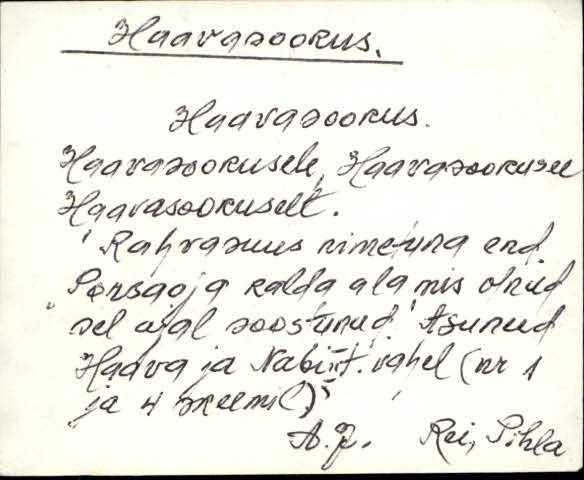 Haavasookus.
Haavasookus.
Haavasookusele, Haavasookusel
Haavasookuselt.
Rahvasuus nimetuna end.
oja kalda ala mis olnud
sel ajal soostunud. Asunud
Haava ja t. vahel (nr 1
ja 4 skeemil)
A. P. Rei, Pihla